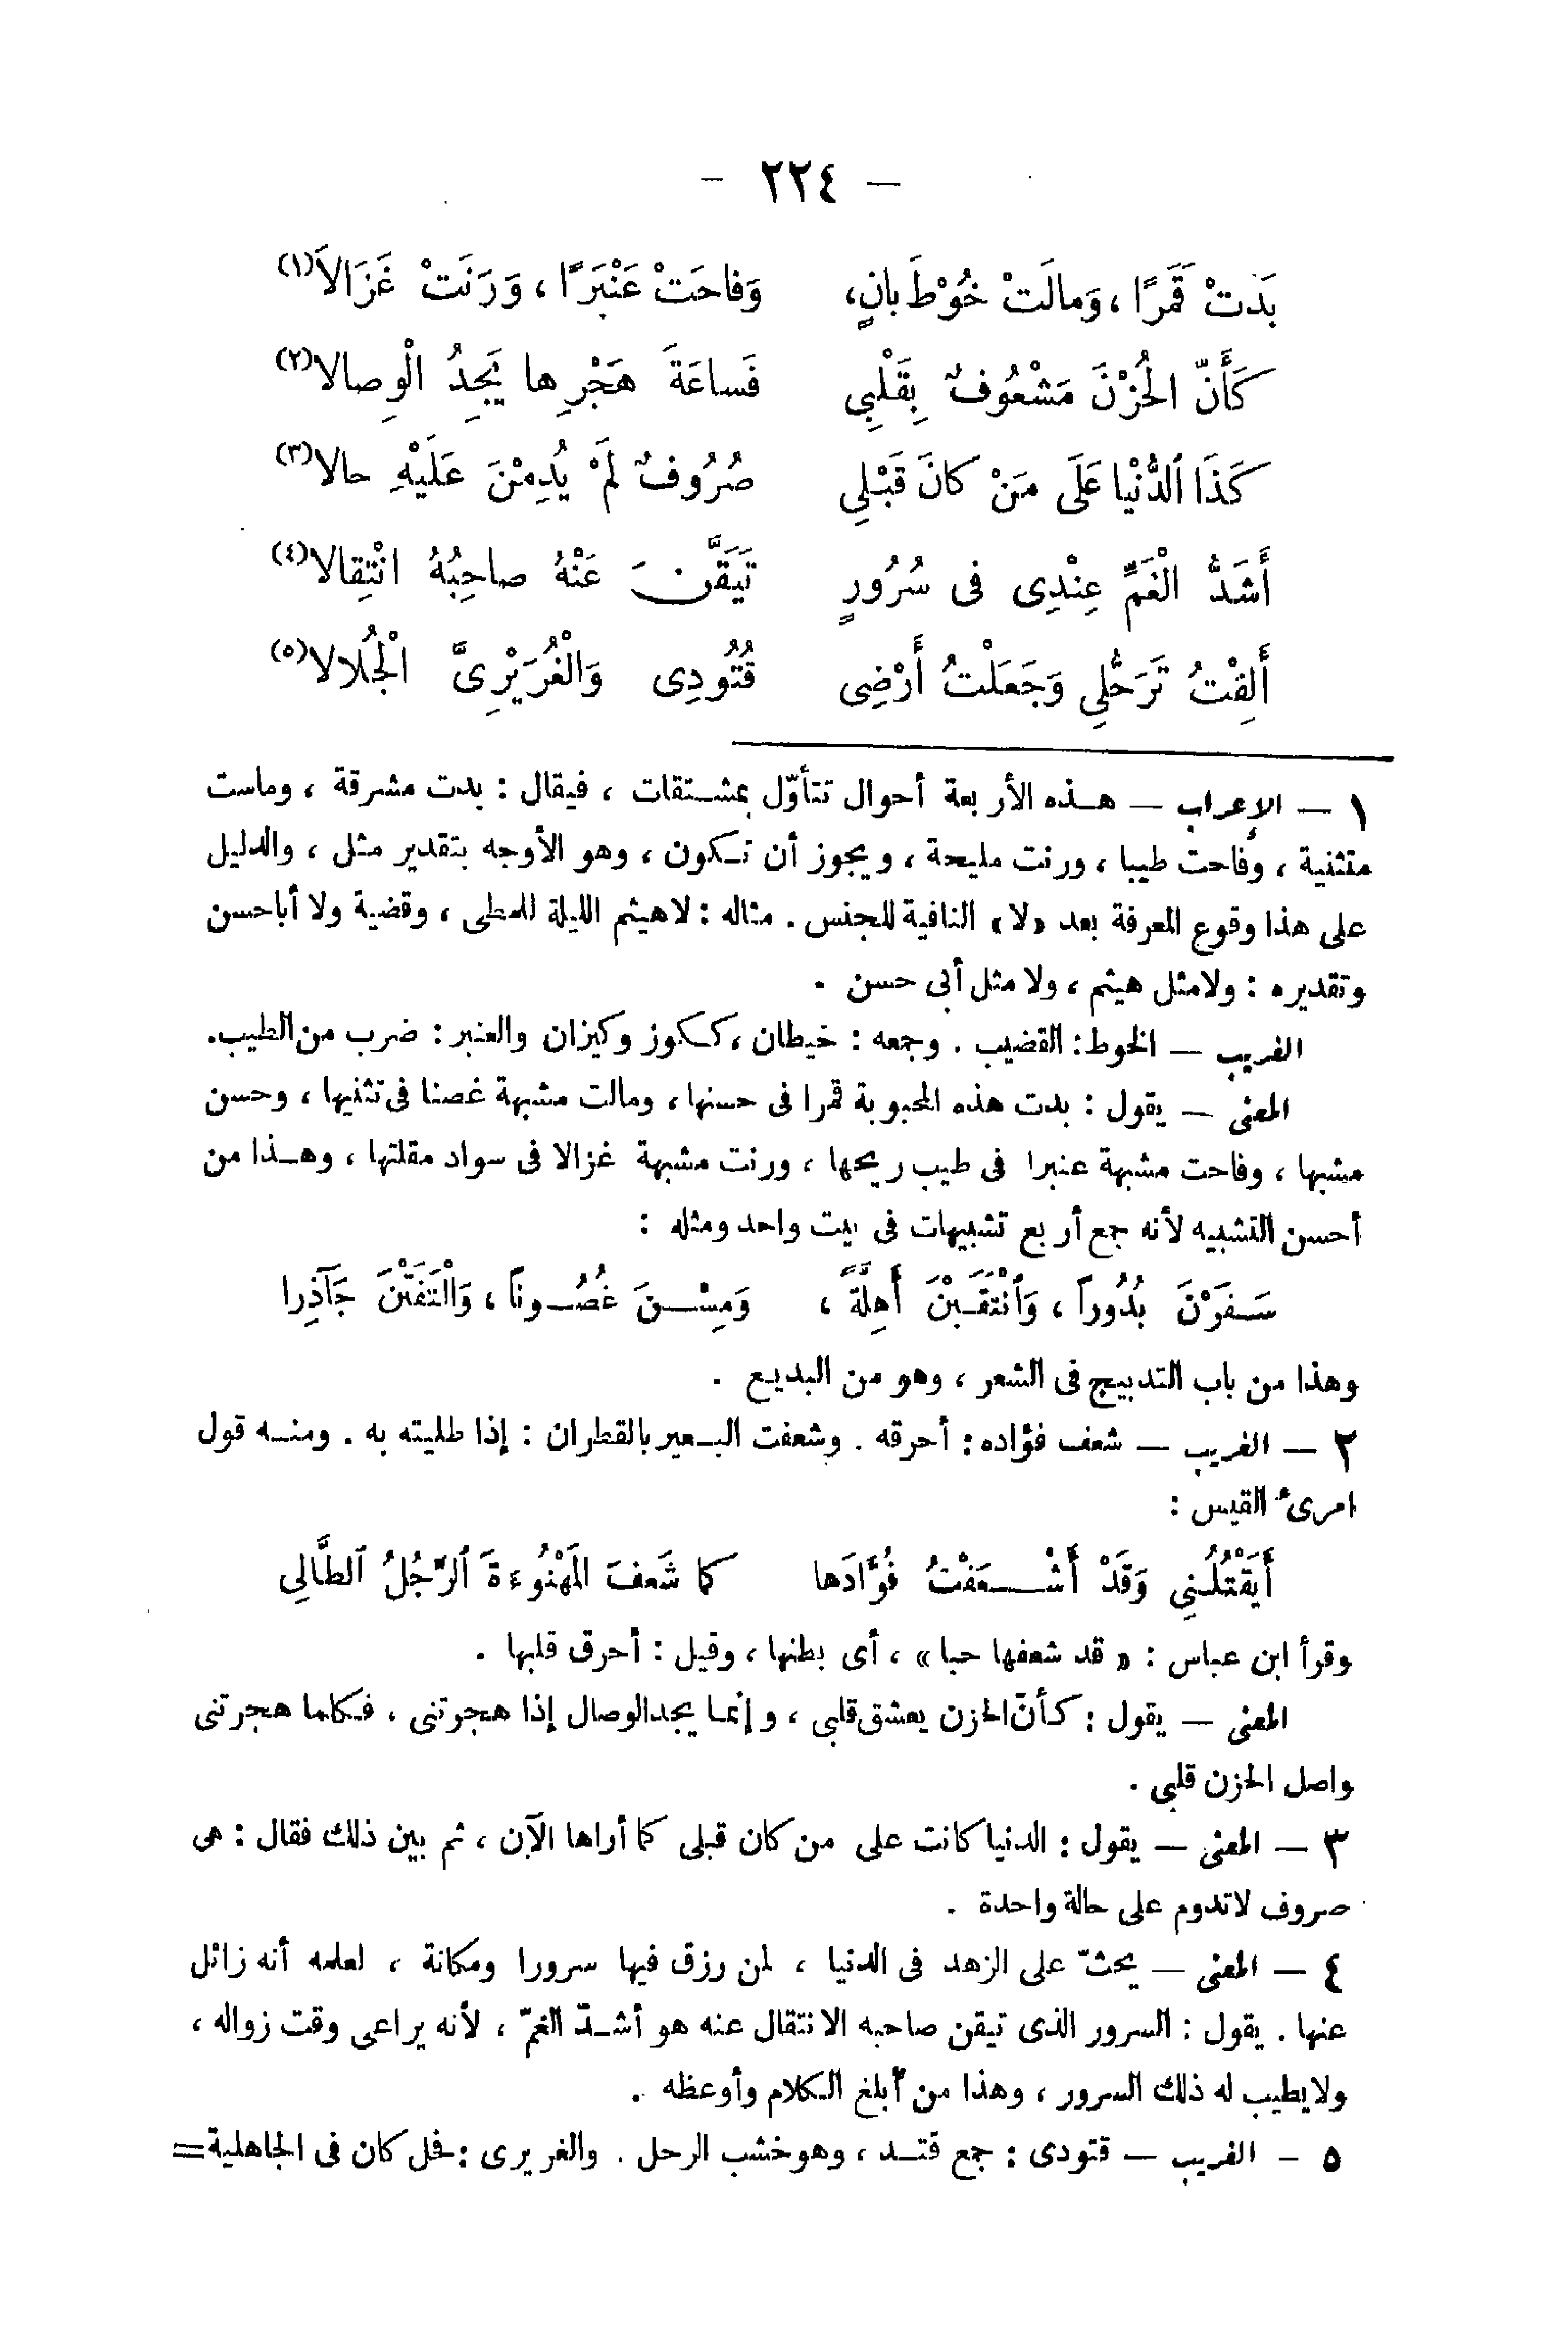 — ٢٢٤ —
بَدَتْ قَمَرًا ، وَمالَتْ خُوْطَ بانٍ، وَفاحَتْ عَنْبَرًا ، وَرَنَتْ غَزَالاَ(١)
كَأَنَّ الْحُزْنَ مَشْعُوفٌ بِقَلْبِى فَساعَةَ هَجْرِها يَجِدُ الْوِصالا(٢)
كَذَا ٱلدُّنْيا عَلَى مَنْ كانَ قَبْلِى صُرُوفٌ لَمْ يُدِمْنَ عَلَيْهِ حالا(٣)
أَشَدُّ الْغَمِّ عِنْدِى فى سُرُورٍ تَيَقَّنَ عَنْهُ صاحِبُهُ انْتِقالا(٤)
أَلِفْتُ تَرَحُّلِى وَجَعَلْتُ أَرْضِى قُتُودِى وَالْغُرَيْرِىَّ الْجُلالا(٥)
١ — الإعراب — هذه الأربعة أحوال تتأوّل بمشتقات ، فيقال : بدت مشرقة ، وماست
متثنية ، وفاحت طيبا ، ورنت مليحة ، ويجوز أن تكون ، وهو الأوجه بتقدير مثل ، والدليل
على هذا وقوع المعرفة بعد «لا» النافية للجنس . مثاله : لاهيثم الليلة للمطى ، وقضية ولا أباحسن
وتقديره : ولامثل هيثم ، ولا مثل أبى حسن .
الغريب — الخوط: القضيب . وجمعه : خيطان ، ككوز وكيزان والعنبر : ضرب من الطيب.
المعنى — يقول : بدت هذه المحبوبة قمرا فى حسنها، ومالت مشبهة غصنا فى تثنيها ، وحسن
مشيها ، وفاحت مشبهة عنبرا فى طيب ريحها ، ورنت مشبهة غزالا فى سواد مقلتها ، وهذا من
أحسن التشبيه لأنه جمع أربع تشبيهات فى بيت واحد ومثله :
سَفَرْنَ بُدُوراً ، وَٱنْتَقَبْنَ أَهِلَّةً ، وَمِسْنَ غُصُوناً ، وَالْتَفَتْنَ جَآذِرا
وهذا من باب التدبيج فى الشعر ، وهو من البديع .
٢ — الغريب — شعف فؤاده : أحرقه . وشعفت البعير بالقطران : إذا طليته به . ومنه قول
امرئ القيس :
أَيَقْتُلُنِى وَقَدْ أَشْعَفْتُ فُؤَادَها كما شَعَفَ الْمَهْنُوءَةَ ٱلرَّجُلُ ٱلطَّالِى
وقرأ ابن عباس : « قد شعفها حبا » ، أى بطنها ، وقيل : أحرق قلبها .
المعنى — يقول : كأنّ الحزن يعشق قلبى ، وإنما يجد الوصال إذا هجرتنى ، فكلما هجرتنى
واصل الحزن قلبى .
٣ — المعنى — يقول : الدنيا كانت على من كان قبلى كما أراها الآن ، ثم بين ذلك فقال : هى
صروف لاتدوم على حالة واحدة .
٤ — المعنى — يحثّ على الزهد فى الدنيا ، لمن رزق فيها سرورا ومكانة ، لعلمه أنه زائل
عنها . يقول : السرور الذى تيقن صاحبه الانتقال عنه هو أشدّ الغمّ ، لأنه يراعى وقت زواله ،
ولايطيب له ذلك السرور ، وهذا من أبلغ الكلام وأوعظه .
٥ - الغريب — قتودى : جمع قتد ، وهو خشب الرحل . والغريرى : فحل كان فى الجاهلية=